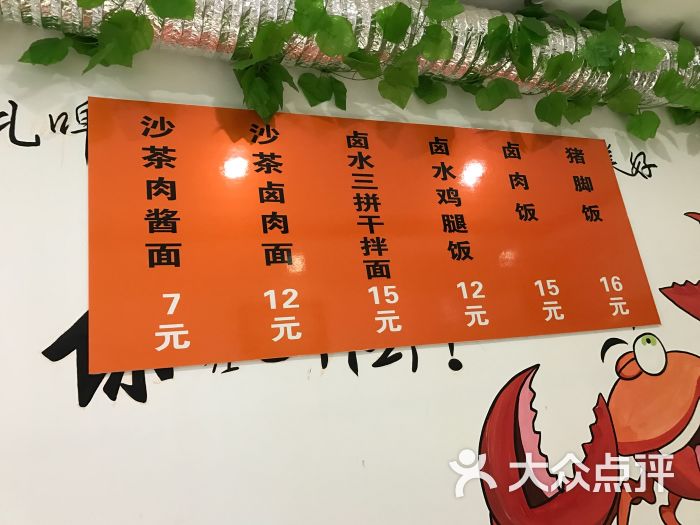 沙茶肉酱面
7元
沙茶卤肉面
12元
卤水三拼干拌面
15元
卤水鸡腿饭
12元
卤肉饭
15元
猪脚饭
16元
你
!
好
大众点评